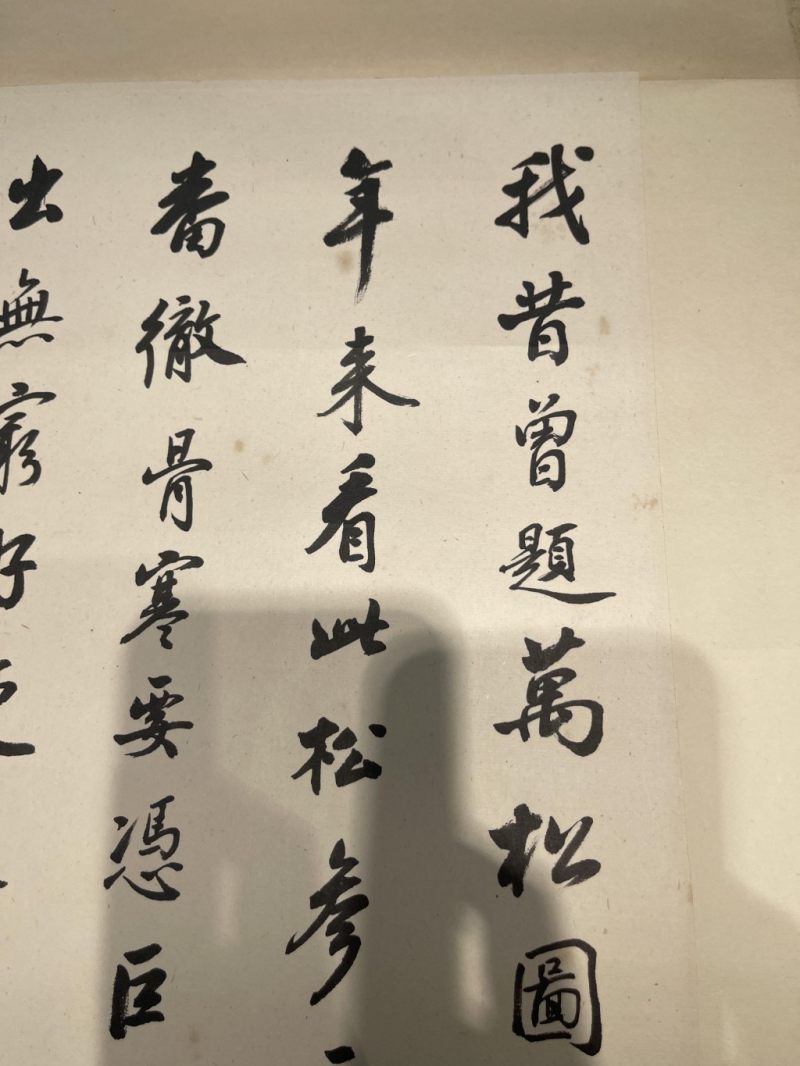 我昔曾題萬松圖
年来看此松參
番徹骨寒要憑巨
出無窮好